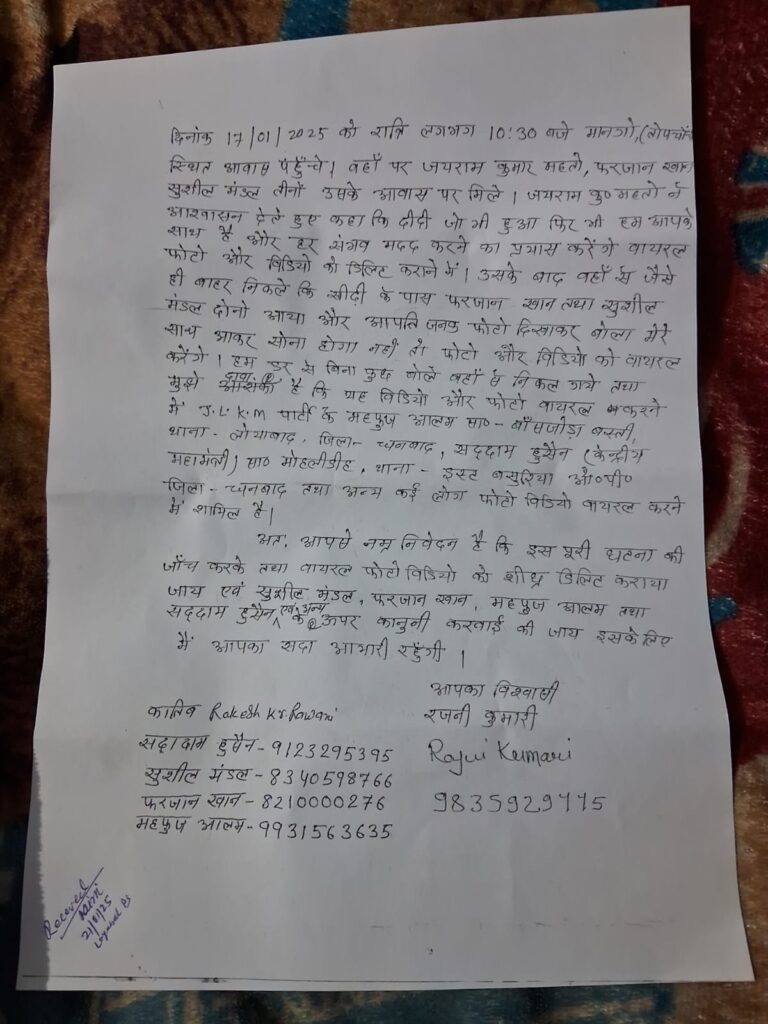 दिनांक 17/01/2025 को रात्रि लगभग 10:30 बजे मानगो, (तोपचाँची
स्थित आवास पहुँचे। वहाँ पर जयराम कुमार महतो, फरजान खान
सुशील मंडल तीनों उसके आवास पर मिले। जयराम कु० महतो ने
आश्वासन देते हुए कहा कि दीदी जो भी हुआ फिर भी हम आपके
साथ है और हर संभव मदद करने का प्रयास करेंगे वायरल
फोटो और विडियो को डिलिट कराने में। उसके बाद वहाँ से जैसे
ही बाहर निकले कि सीढी के पास फरजान खान तथा सुशील
मंडल दोनो आया और आपति जनक फोटो दिखाकर बोला मेरे
साथ आकर सोना होगा नही तो फोटो और विडियो को वायरल
करेंगे। हम डर से बिना कुछ बोले वहाँ से निकल गये तथा
मुझे दावा है कि यह विडियो और फोटो वायरल करने
में J.L.K.M पार्टी के महफुज आलम सा०- बाँसजोड़ा बस्ती,
थाना- लोयाबाद, जिला- धनबाद, सद्दाम हुसैन (केन्द्रीय
महामंत्री) सा० मोहलीडीह, थाना- इस्ट बसुरिया ओ०पी०
जिला- धनबाद तथा अन्य कई लोग फोटो विडियो वायरल करने
में शामिल है।
अतः आपसे नम्र निवेदन है कि इस पूरी घटना की
जाँच करके तथा वायरल फोटो विडियो को शीघ्र डिलिट कराया
जाय एवं सुशील मंडल, फरजान खान, महफुज आलम तथा
सद्दाम हुसैन एवं अन्य के ऊपर कानुनी करवाई की जाय इसके लिए
मैं आपका सदा आभारी रहुँगी।
आपका विश्वासी
कातिब Rakesh Kr Rawani रजनी कुमारी
सद्दाम हुसैन- 9123295395 Rajni Kumari
सुशील मंडल- 8340598766
फरजान खान- 8210000276 9835929775
महफुज आलम- 9931563635
Received
21/01/25
Loyabad PS